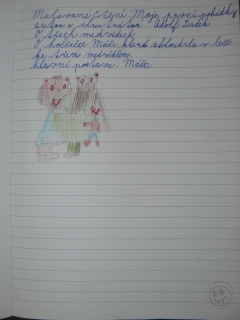 Malované čtení Moje první pohádky
autor a ilustrátor Adolf Dudek
O třech medvědech
O holčičce Máše, která zabloudila v lese
ke třem medvědům.
hlavní postava: Máša